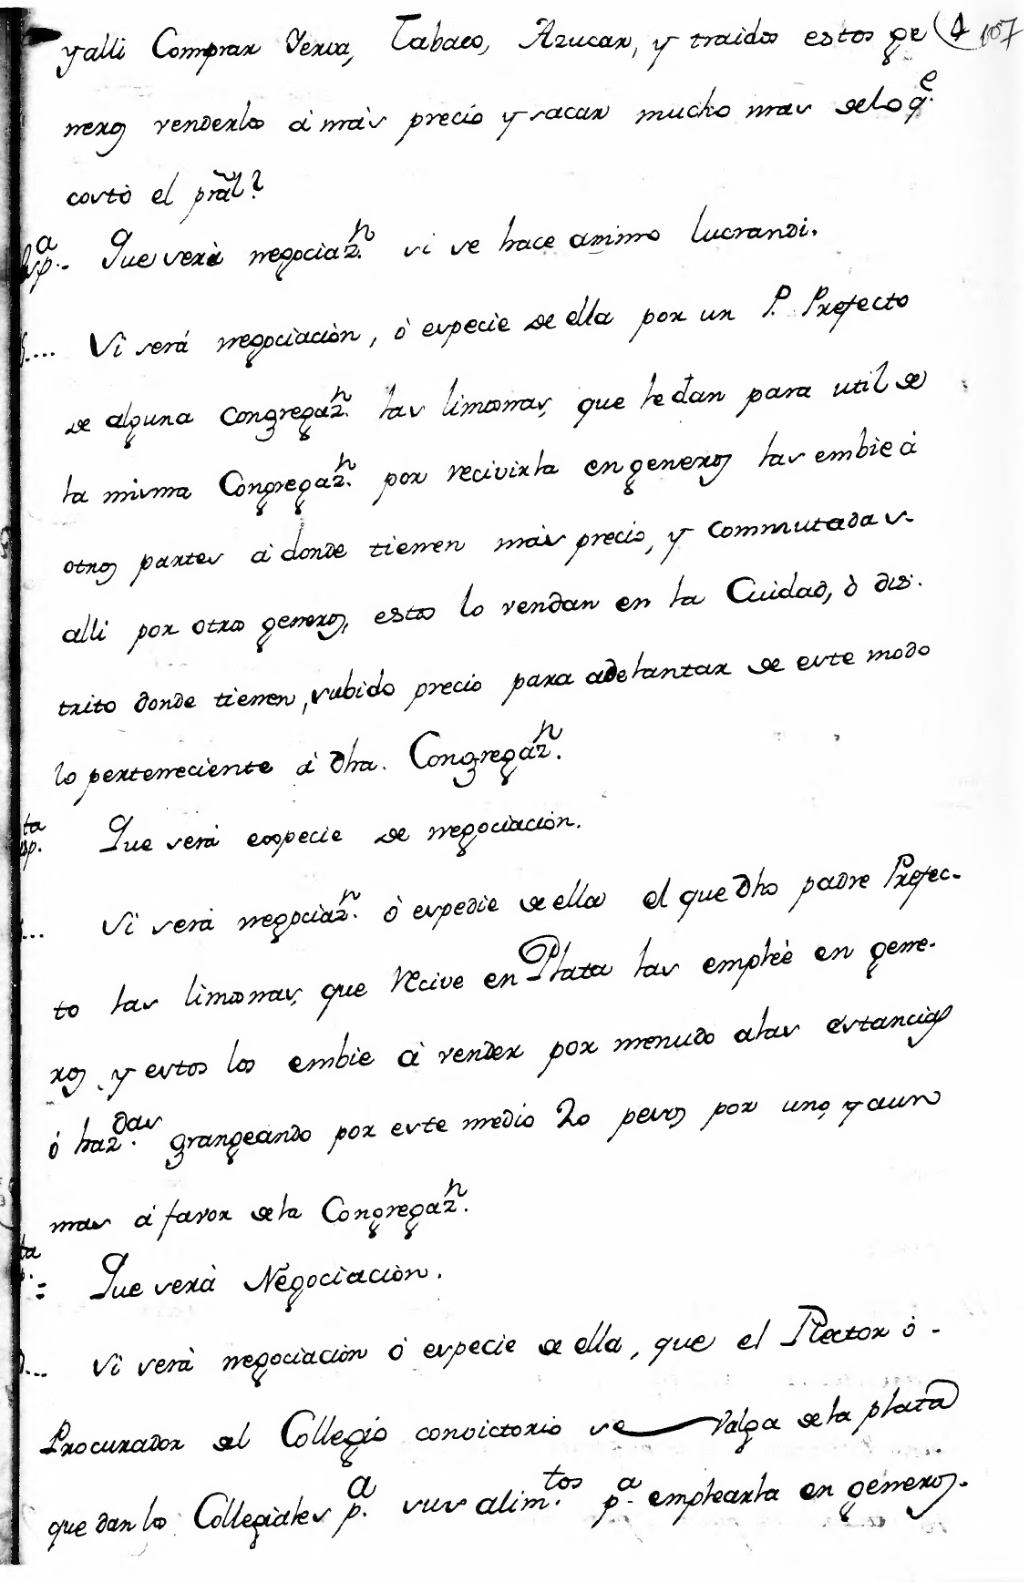 y alli Comprar Yerva, Tabaco, Azucar, y traidos estos ge 4 107
neros venderlos à màs precio y sacar mucho mas de lo q.e
costò el prãl?
Resp.a - Que serà negociaz.n si se hace animo lucrandi.
.... Si serà negociaciòn, ò especie de ella por un P. Prefecto
de alguna Congregaz.n las limosnas, que le dan para util de
la misma Congregaz.n por recivirla en generos las embie à
otros partes à donde tienen màs precio, y commutadas
alli por otros generos, estos lo vendan en la Cuidad, ò dis-
trito donde tienen, subido precio para adelantar de este modo
lo perteneciente à dha. Congregaz.n
Resp.ta Que serà especie de negociaciòn.
.... Si serà negociaz.n ò espedie de ella el que dho padre Prefec-
to las limosnas, que Recive en Plata las empleè en gene-
ros, y estos los embie à vender por menudo a las estancias
ò haz.das grangeando por este medio 20 pesos por uno, y aun
mas à favor de la Congregaz.n
ta = Que serà Negociaciòn.
.... Si serà negociaciòn ò especie de ella, que el Rector ò -
Procurador del Collegio convictorio se valga de la plata
que dan los Collegiales p.a sus alim.tos p.a emplearla en generos.